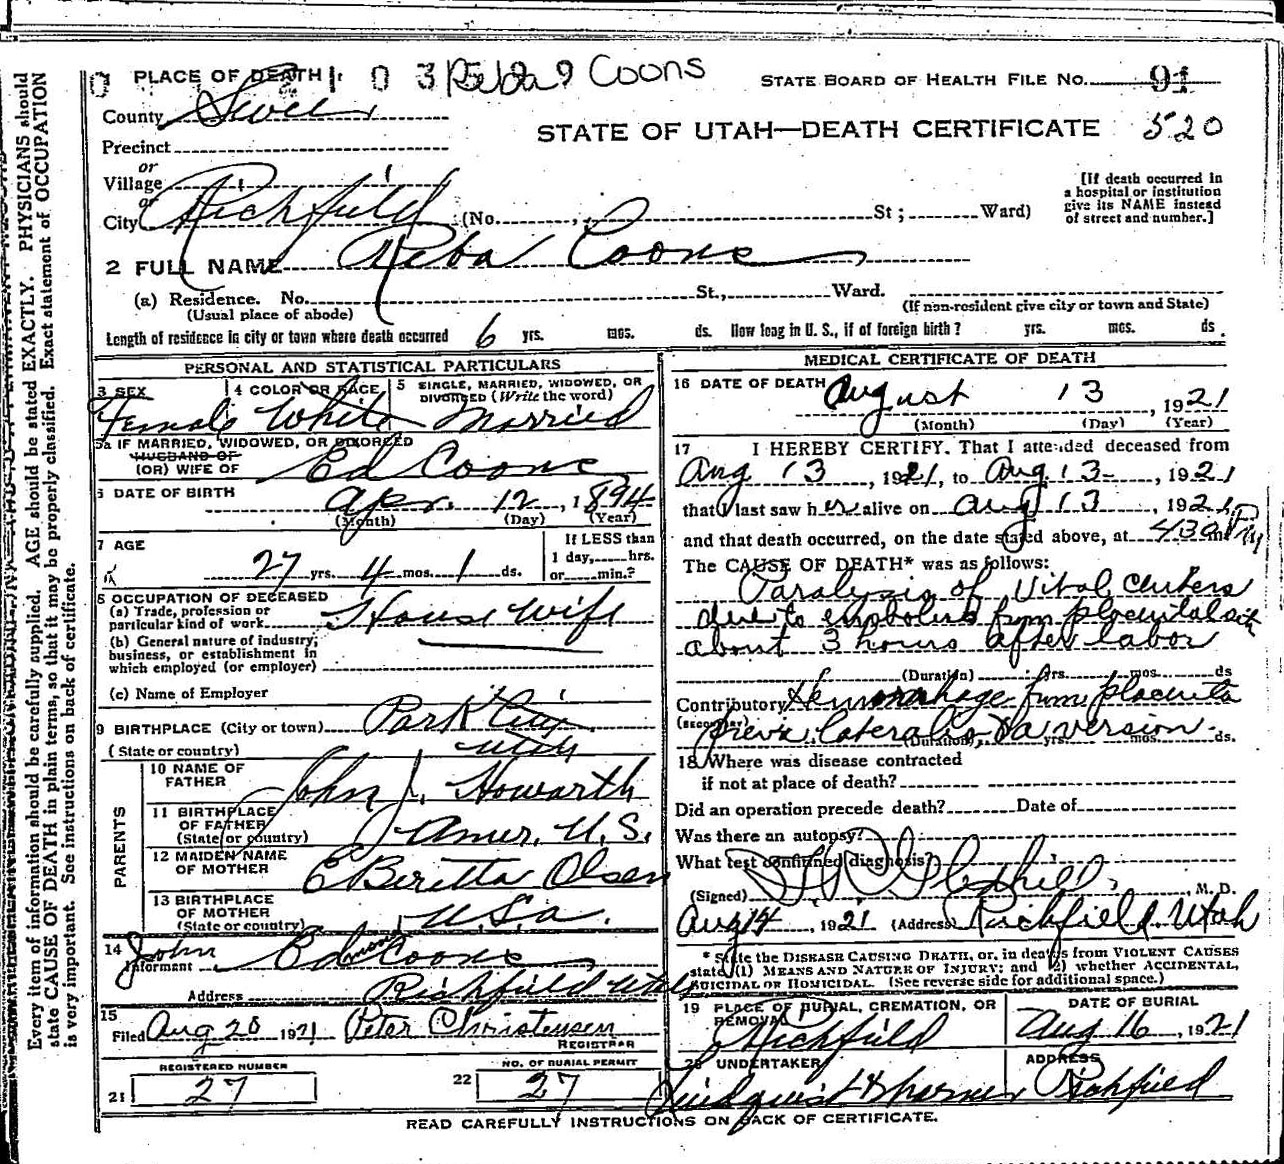 PLACE OF DEATH 1 0 3 Reba 9 Coons
STATE BOARD OF HEALTH FILE No. 91
County Sevier
STATE OF UTAH—DEATH CERTIFICATE 520
Precinct
or
Village
or
City Richfield (No. St; Ward)
[If death occurred in
a hospital or institution
give its NAME instead
of street and number.]
2 FULL NAME Reba Coons
(a) Residence. No. St., Ward.
(Usual place of abode)
(If non-resident give city or town and State)
Length of residence in city or town where death occurred 6 yrs. mos. ds. How long in U. S., if of foreign birth? yrs. mos. ds.
PERSONAL AND STATISTICAL PARTICULARS
3 SEX
4 COLOR OR RACE
5 SINGLE, MARRIED, WIDOWED, OR
DIVORCED (Write the word)
Female White Married
5a IF MARRIED, WIDOWED, OR DIVORCED
HUSBAND OF
(OR) WIFE OF Ed Coons
6 DATE OF BIRTH
Apr. 12, 1894
(Month) (Day) (Year)
7 AGE
27 yrs. 4 mos. 1 ds.
If LESS than
1 day, hrs.
or min.?
8 OCCUPATION OF DECEASED
(a) Trade, profession or
particular kind of work House Wife
(b) General nature of industry,
business, or establishment in
which employed (or employer)
(c) Name of Employer
9 BIRTHPLACE (City or town) Park City
(State or country) Utah
PARENTS
10 NAME OF
FATHER John J. Howarth
11 BIRTHPLACE
OF FATHER
(State or country) Amer. U.S.
12 MAIDEN NAME
OF MOTHER E Beretta Olsen
13 BIRTHPLACE
OF MOTHER
(State or country) U.S.a.
14 John
Informant Ed Coons
Address Richfield Utah
15
Filed Aug 20 1921 Peter Christensen
REGISTRAR
REGISTERED NUMBER
21 27
NO. OF BURIAL PERMIT
22 27
MEDICAL CERTIFICATE OF DEATH
16 DATE OF DEATH August 13, 1921
(Month) (Day) (Year)
17 I HEREBY CERTIFY. That I attended deceased from
Aug 13, 1921, to Aug 13, 1921
that I last saw her alive on Aug 13, 1921,
and that death occurred, on the date stated above, at 430 m PM
The CAUSE OF DEATH* was as follows:
Paralysis of Vital Centers
due to embolus from placental site
about 3 hours after labor
(Duration) yrs. mos. ds
Contributory Hemorrhage from placenta
(secondary) previa lateralis version.
(Duration) yrs. mos. ds.
18 Where was disease contracted
if not at place of death?
Did an operation precede death? Date of
Was there an autopsy?
What test confirmed diagnosis?
(Signed) Gledhill, M. D.
Aug 14, 1921 (Address) Richfield Utah
* State the DISEASE CAUSING DEATH, or, in deaths from VIOLENT CAUSES
state (1) MEANS AND NATURE OF INJURY; and (2) whether ACCIDENTAL,
SUICIDAL OR HOMICIDAL. (See reverse side for additional space.)
19 PLACE OF BURIAL, CREMATION, OR
REMOVAL
Richfield
DATE OF BURIAL
Aug 16, 1921
20 UNDERTAKER
ADDRESS
Richfield
READ CAREFULLY INSTRUCTIONS ON BACK OF CERTIFICATE.
Every item of information should be carefully supplied. AGE should be stated EXACTLY. PHYSICIANS should
state CAUSE OF DEATH in plain terms, so that it may be properly classified. Exact statement of OCCUPATION
is very important. See instructions on back of certificate.